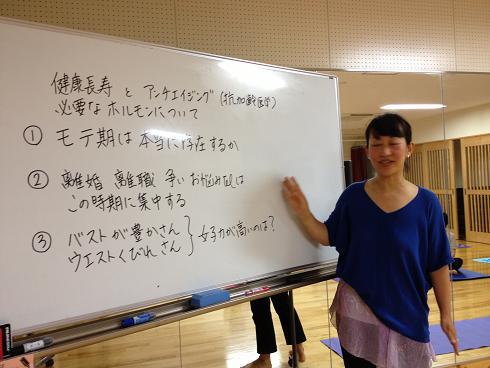 健康長寿 と アンチエイジング (抗加齢医学)
必要な ホルモンについて
① モテ期は本当に存在するか
② 離婚 離職 争い お悩み相談は
この時期に集中する
③ バストが豊かさん
ウエストくびれさん } 女子力が高いのは?